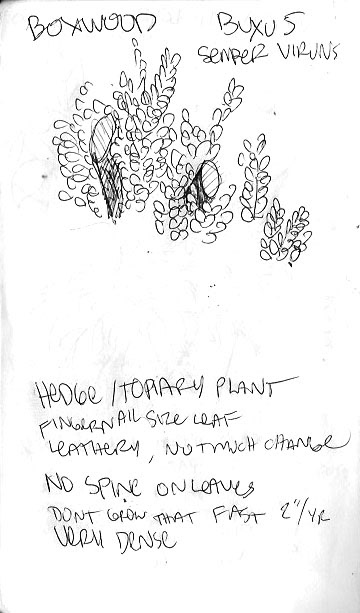 BOXWOOD
BUXUS
SEMPER VIRUNS
HEDGE / TOPIARY PLANT
FINGERNAIL SIZE LEAF
LEATHERY, NOT MUCH CHANGE
NO SPINE ON LEAVES
DONT GROW THAT FAST 2"/YR
VERY DENSE